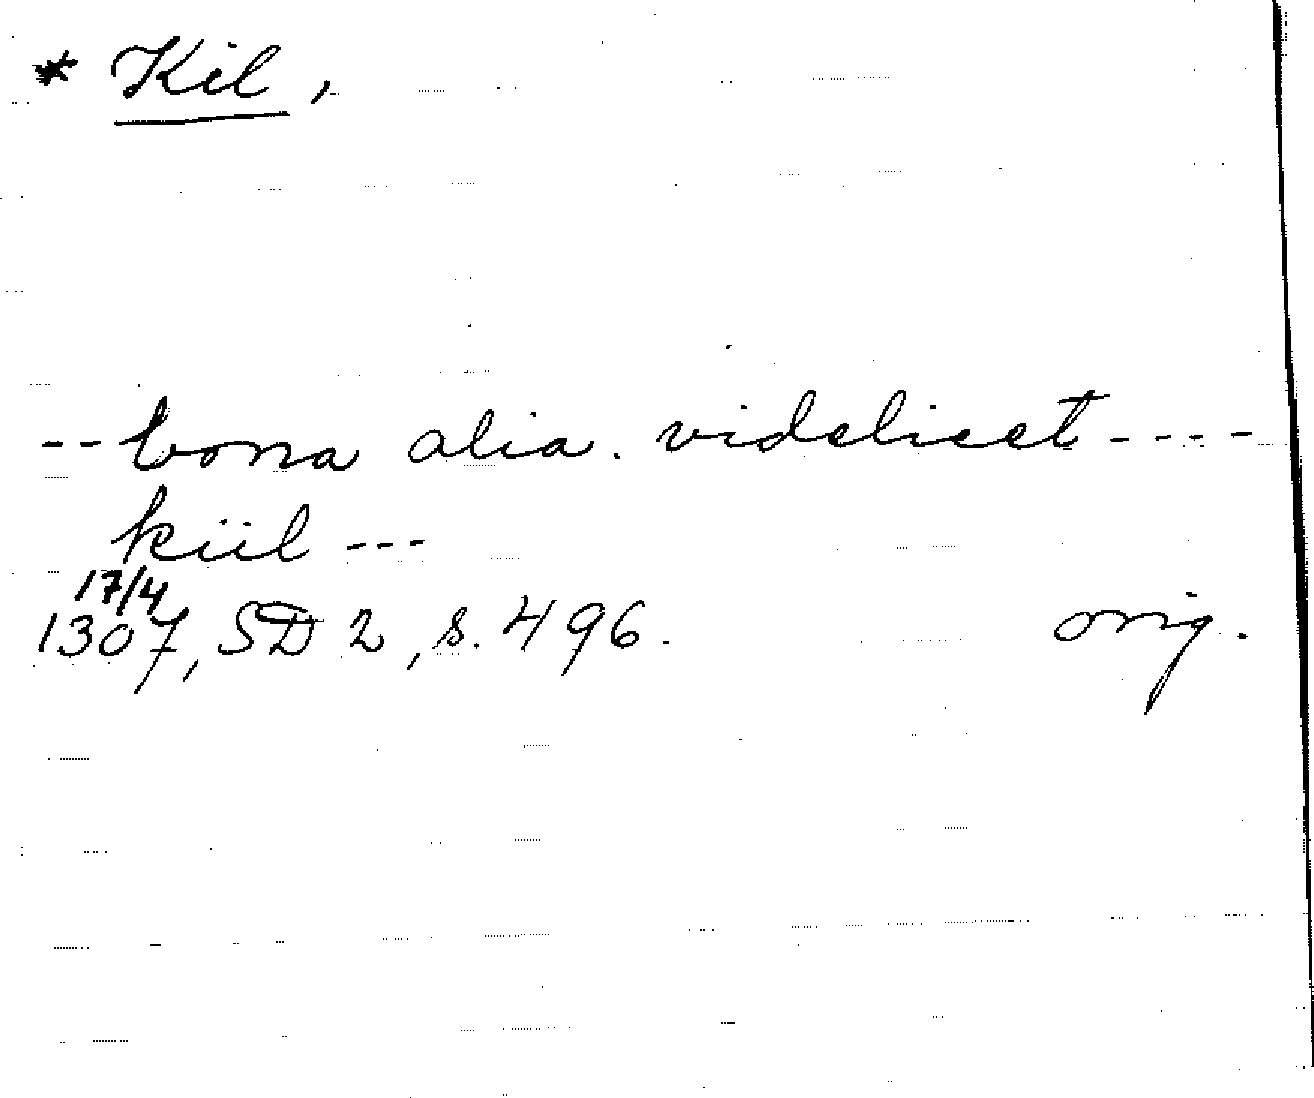 * Kil,
-- bona alia. videlicet ----
kiil ---
17/4
1307, SD 2, s. 496. orig.